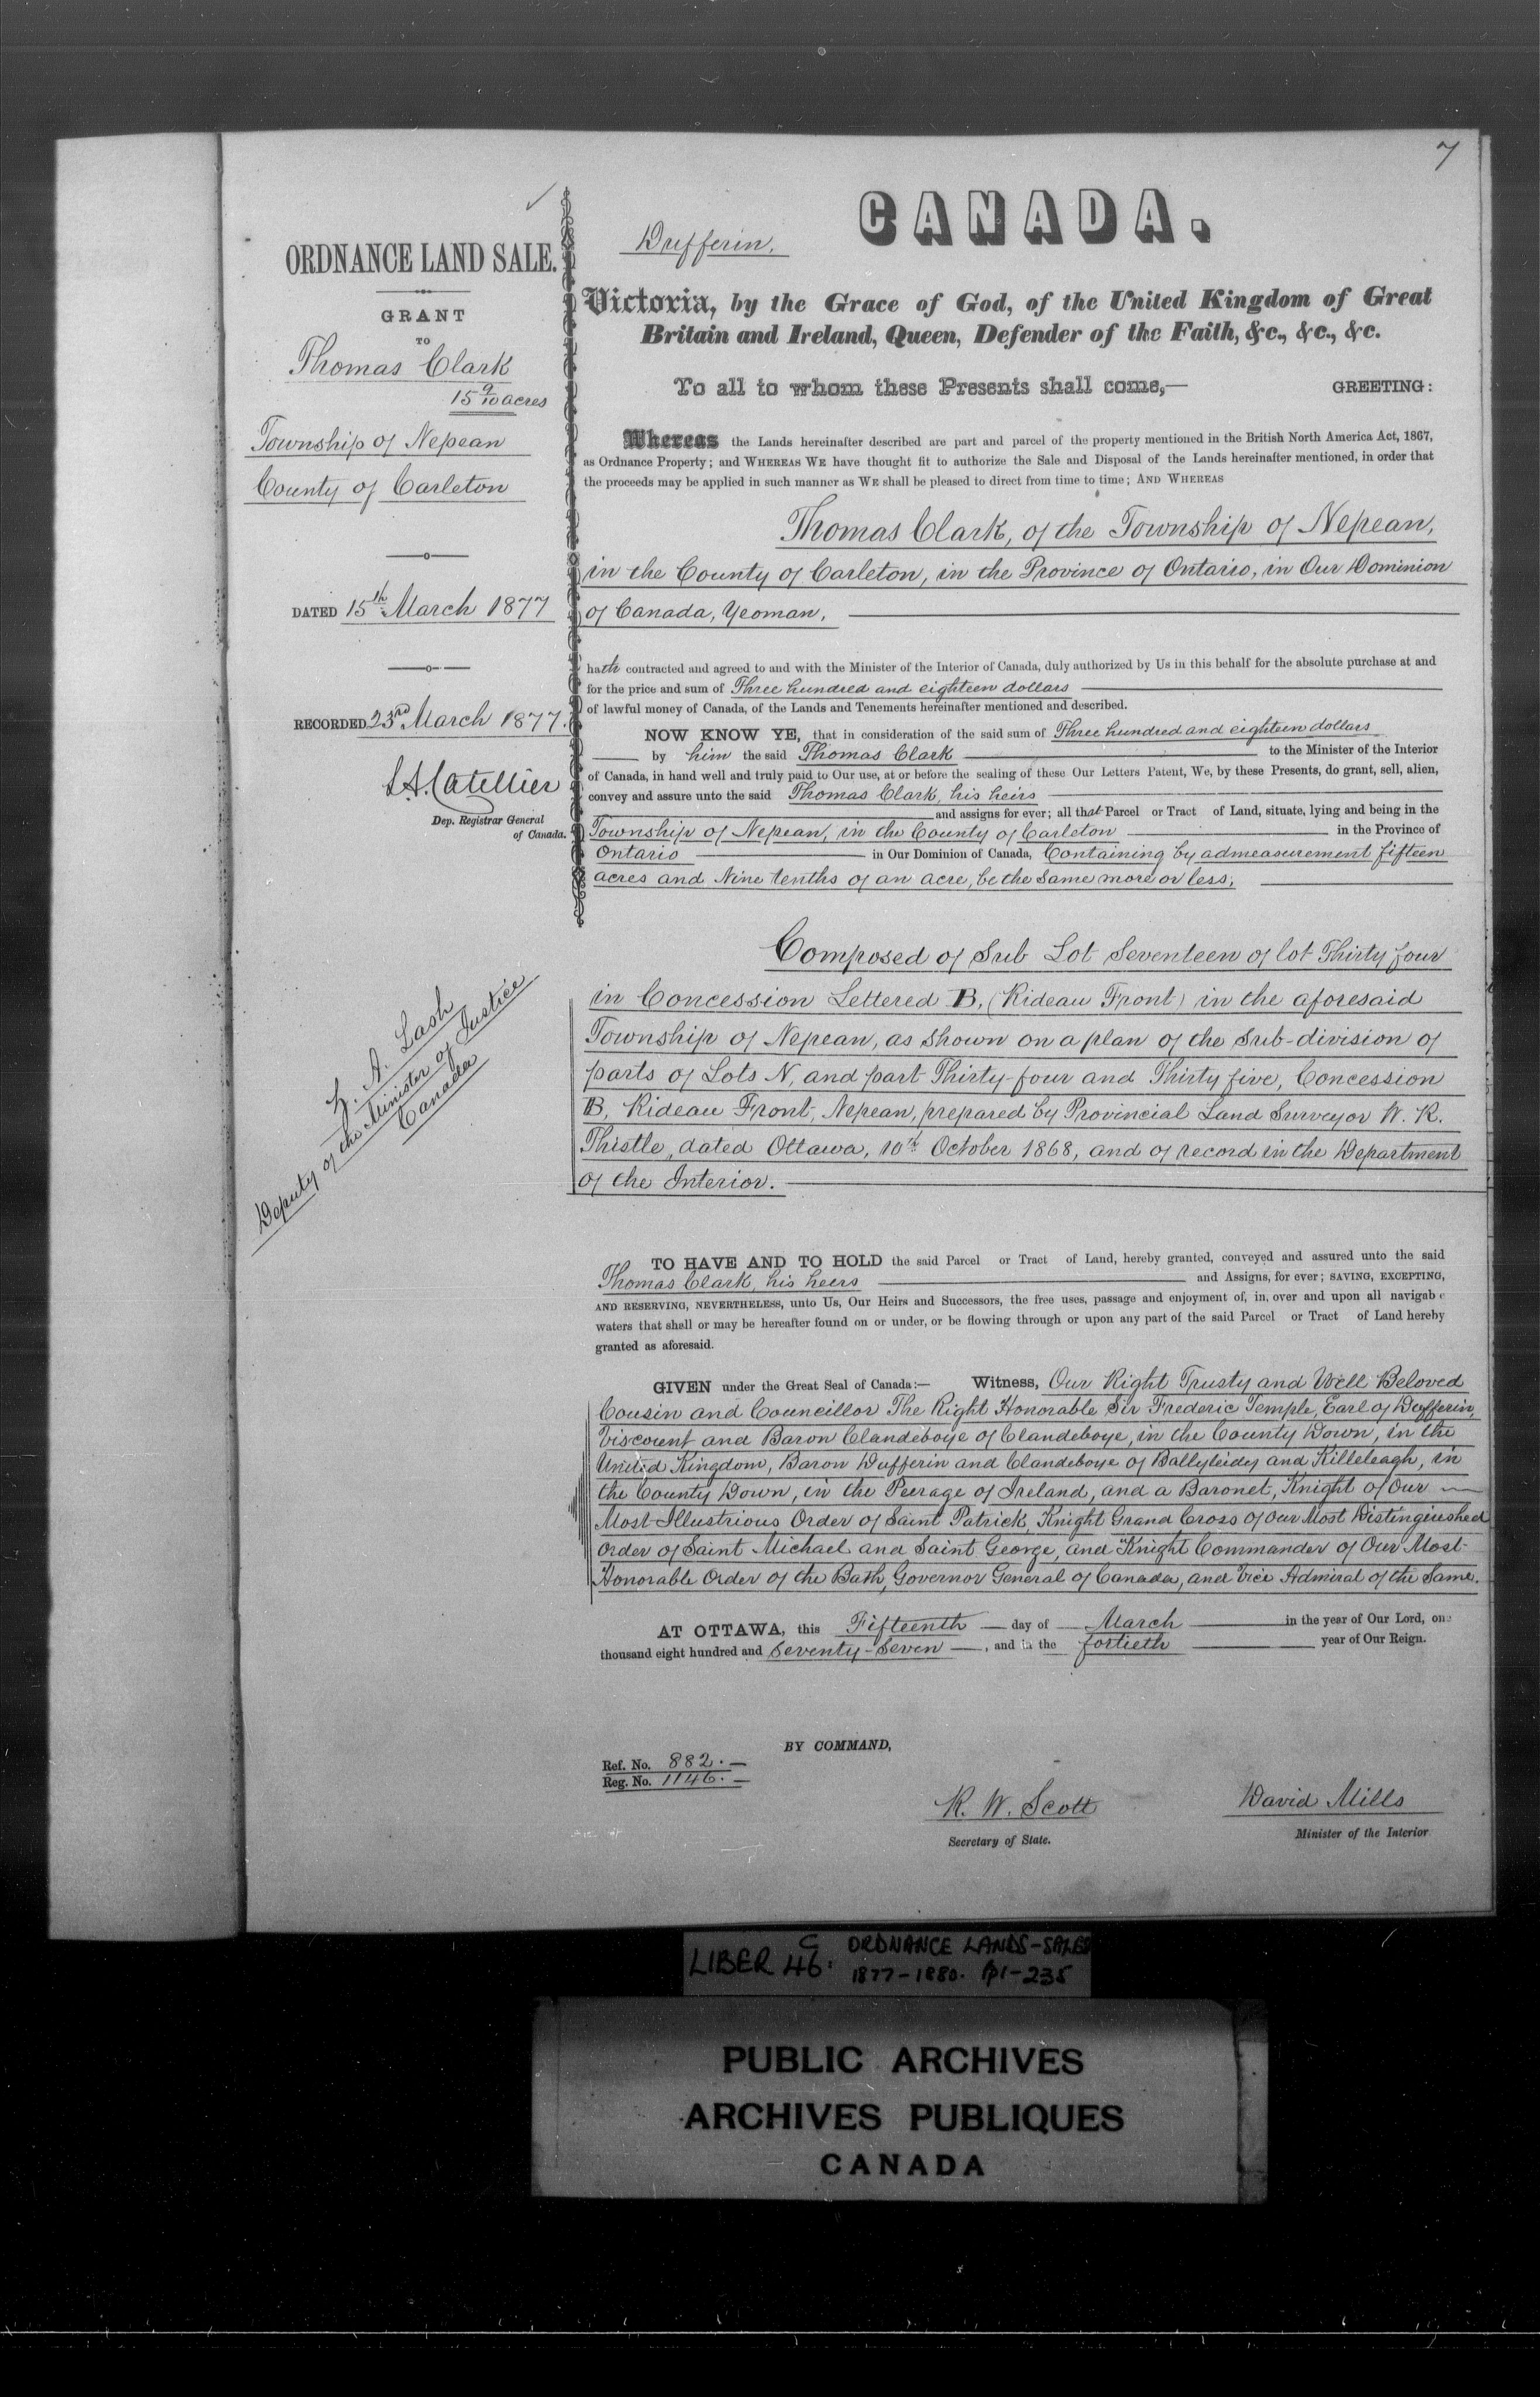 7
ORDNANCE LAND SALE.
GRANT
TO
Thomas Clark
15 9/10 acres
Township of Nepean
County of Carleton
DATED 15th March 1877
RECORDED 23rd March 1877.
L.A. Catellier
Dep. Registrar General
of Canada.
Z. A. Lash
Deputy of the Minister of Justice
Canada
CANADA.
Dufferin.
Victoria, by the Grace of God, of the United Kingdom of Great
Britain and Ireland, Queen, Defender of the Faith, &c., &c., &c.
To all to whom these Presents shall come,— GREETING:
Whereas the Lands hereinafter described are part and parcel of the property mentioned in the British North America Act, 1867,
as Ordnance Property; and WHEREAS WE have thought fit to authorize the Sale and Disposal of the Lands hereinafter mentioned, in order that
the proceeds may be applied in such manner as WE shall be pleased to direct from time to time; AND WHEREAS
Thomas Clark, of the Township of Nepean,
in the County of Carleton, in the Province of Ontario, in Our Dominion
of Canada, Yeoman,
hath contracted and agreed to and with the Minister of the Interior of Canada, duly authorized by Us in this behalf for the absolute purchase at and
for the price and sum of Three hundred and eighteen dollars
of lawful money of Canada, of the Lands and Tenements hereinafter mentioned and described.
NOW KNOW YE, that in consideration of the said sum of Three hundred and eighteen dollars
by him the said Thomas Clark to the Minister of the Interior
of Canada, in hand well and truly paid to Our use, at or before the sealing of these Our Letters Patent, We, by these Presents, do grant, sell, alien,
convey and assure unto the said Thomas Clark, his heirs
and assigns for ever; all that Parcel or Tract of Land, situate, lying and being in the
Township of Nepean, in the County of Carleton in the Province of
Ontario in Our Dominion of Canada, Containing by admeasurement fifteen
acres and Nine tenths of an acre, be the same more or less,
Composed of Sub Lot Seventeen of lot Thirty four
in Concession Lettered B, (Rideau Front) in the aforesaid
Township of Nepean, as shown on a plan of the Sub-division of
parts of Lots N, and part Thirty-four and Thirty five, Concession
B, Rideau Front, Nepean, prepared by Provincial Land Surveyor W. R.
Thistle, dated Ottawa, 10th October 1868, and of record in the Department
of the Interior.
TO HAVE AND TO HOLD the said Parcel or Tract of Land, hereby granted, conveyed and assured unto the said
Thomas Clark, his heirs and Assigns, for ever; SAVING, EXCEPTING,
AND RESERVING, NEVERTHELESS, unto Us, Our Heirs and Successors, the free uses, passage and enjoyment of, in, over and upon all navigab e
waters that shall or may be hereafter found on or under, or be flowing through or upon any part of the said Parcel or Tract of Land hereby
granted as aforesaid.
GIVEN under the Great Seal of Canada:— Witness, Our Right Trusty and Well Beloved
Cousin and Councillor The Right Honorable Sir Frederic Temple, Earl of Dufferin,
Viscount and Baron Clandeboye of Clandeboye, in the County Down, in the
United Kingdom, Baron Dufferin and Clandeboye of Ballyleidy and Killeleagh, in
the County Down, in the Peerage of Ireland, and a Baronet, Knight of Our
Most Illustrious Order of Saint Patrick, Knight Grand Cross of Our Most Distinguished
Order of Saint Michael and Saint George, and Knight Commander of Our Most
Honorable Order of the Bath, Governor General of Canada, and Vice Admiral of the Same.
AT OTTAWA, this Fifteenth day of March in the year of Our Lord, one
thousand eight hundred and Seventy-Seven, and in the fortieth year of Our Reign.
BY COMMAND,
Ref. No. 882.
Reg. No. 1146.
R. W. Scott
Secretary of State.
David Mills
Minister of the Interior
LIBER C 46: ORDNANCE LANDS-SALES
1877-1880. pp1-235
PUBLIC ARCHIVES
ARCHIVES PUBLIQUES
CANADA